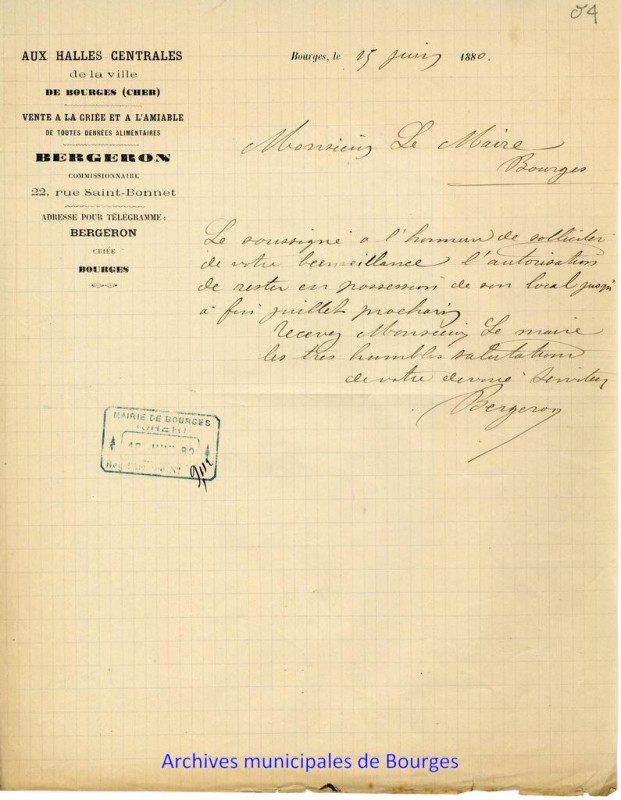 54
AUX HALLES CENTRALES
de la ville
DE BOURGES (CHER)
VENTE A LA CRIÉE ET A L'AMIABLE
DE TOUTES DENRÉES ALIMENTAIRES
BERGERON
COMMISSIONNAIRE
22, rue Saint-Bonnet
ADRESSE POUR TÉLÉGRAMME:
BERGERON
CRIÉE
BOURGES
Bourges, le 15 juin 1880.
Monsieur Le Maire
Bourges
Le soussigné a l'honneur de solliciter
de votre bienveillance l'autorisation
de rester en possession de son local jusqu'
à fin juillet prochain
Recevez Monsieur Le maire
les très humbles salutations
de votre dévoué Serviteur
Bergeron
MAIRIE DE BOURGES
(CHER)
JUIN 80
N°
Archives municipales de Bourges